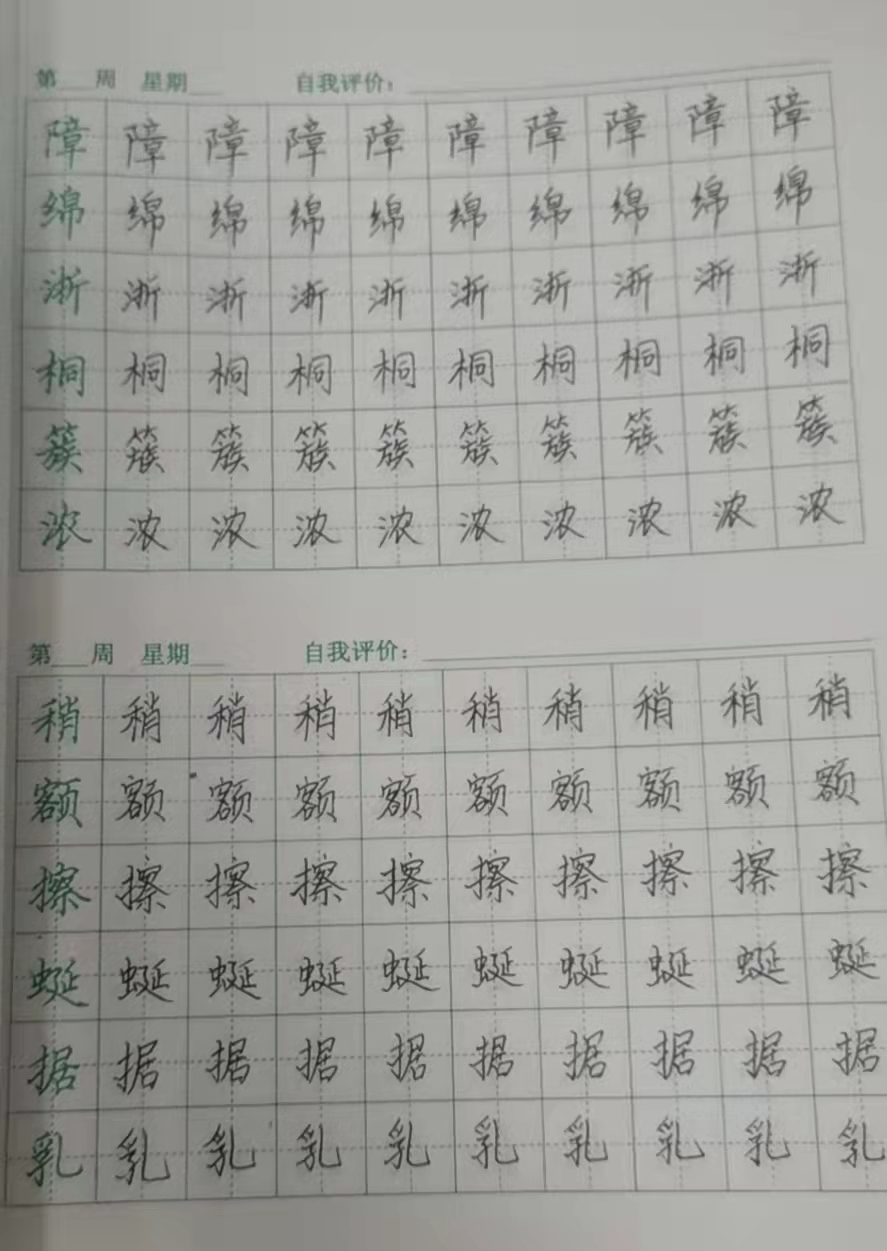 第 周 星期 自我评价：
障 障 障 障 障 障 障 障 障 障
绵 绵 绵 绵 绵 绵 绵 绵 绵 绵
浙 浙 浙 浙 浙 浙 浙 浙 浙 浙
桐 桐 桐 桐 桐 桐 桐 桐 桐 桐
簇 簇 簇 簇 簇 簇 簇 簇 簇 簇
浓 浓 浓 浓 浓 浓 浓 浓 浓 浓
第 周 星期 自我评价：
稍 稍 稍 稍 稍 稍 稍 稍 稍 稍
额 额 额 额 额 额 额 额 额 额
擦 擦 擦 擦 擦 擦 擦 擦 擦 擦
蜒 蜒 蜒 蜒 蜒 蜒 蜒 蜒 蜒 蜒
据 据 据 据 据 据 据 据 据 据
乳 乳 乳 乳 乳 乳 乳 乳 乳 乳